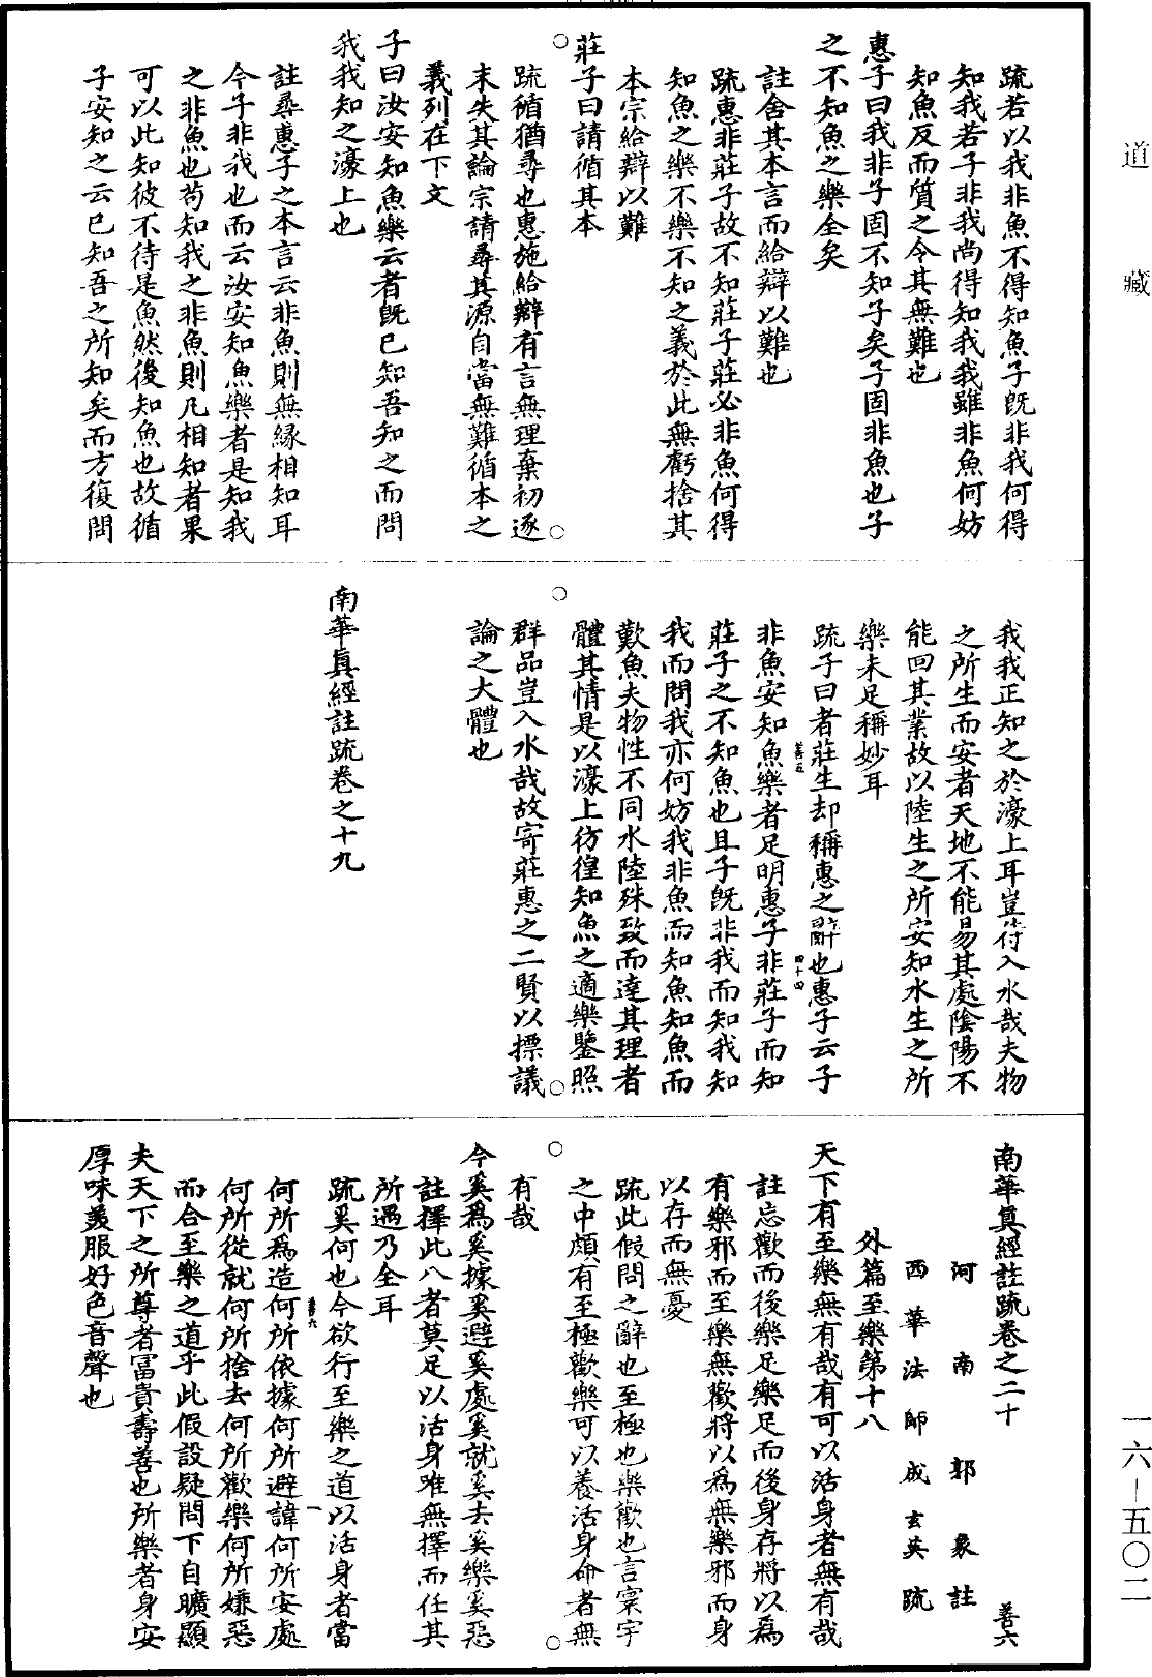 道藏
疏若以我非魚不得知魚子既非我何得
知我若子非我尚得知我我雖非魚何妨
知魚反而質之令其無難也
惠子曰我非子固不知子矣子固非魚也子
之不知魚之樂全矣
註舍其本言而給辯以難也
疏惠非莊子故不知莊子莊必非魚何得
知魚之樂不樂不知之義於此無虧捨其
本宗給辯以難
莊子曰請循其本
疏循猶尋也惠施給辯有言無理棄初逐
末失其論宗請尋其源自當無難循本之
義列在下文
子曰汝安知魚樂云者既已知吾知之而問
我我知之濠上也
註尋惠子之本言云非魚則無緣相知耳
今子非我也而云汝安知魚樂者是知我
之非魚也苟知我之非魚則凡相知者果
可以此知彼不待是魚然後知魚也故循
子安知之云已知吾之所知矣而方復問
我我正知之於濠上耳豈待入水哉夫物
之所生而安者天地不能易其處陰陽不
能回其業故以陸生之所安知水生之所
樂未足稱妙耳
疏子曰者莊生却稱惠之辭也惠子云子
善五
四十四
非魚安知魚樂者足明惠子非莊子而知
莊子之不知魚也且子既非我而知我知
我而問我亦何妨我非魚而知魚知魚而
歎魚夫物性不同水陸殊致而達其理者
體其情是以濠上彷徨知魚之適樂鑒照
群品豈入水哉故寄莊惠之二賢以摽議
論之大體也
南華真經註疏卷之十九
南華真經註疏卷之二十 善六
河南郭象註
西華法師成玄英疏
外篇至樂第十八
天下有至樂無有哉有可以活身者無有哉
註忘歡而後樂足樂足而後身存將以為
有樂邪而至樂無歡將以為無樂邪而身
以存而無憂
疏此假問之辭也至極也樂歡也言寰宇
之中頗有至極歡樂可以養活身命者無
有哉
今奚為奚據奚避奚處奚就奚去奚樂奚惡
註擇此八者莫足以活身唯無擇而任其
所遇乃全耳
疏奚何也今欲行至樂之道以活身者當
善六
一
何所為造何所依據何所避諱何所安處
何所從就何所捨去何所歡樂何所嫌惡
而合至樂之道乎此假設疑問下自曠顯
夫天下之所尊者富貴壽善也所樂者身安
厚味美服好色音聲也
一六—五〇二